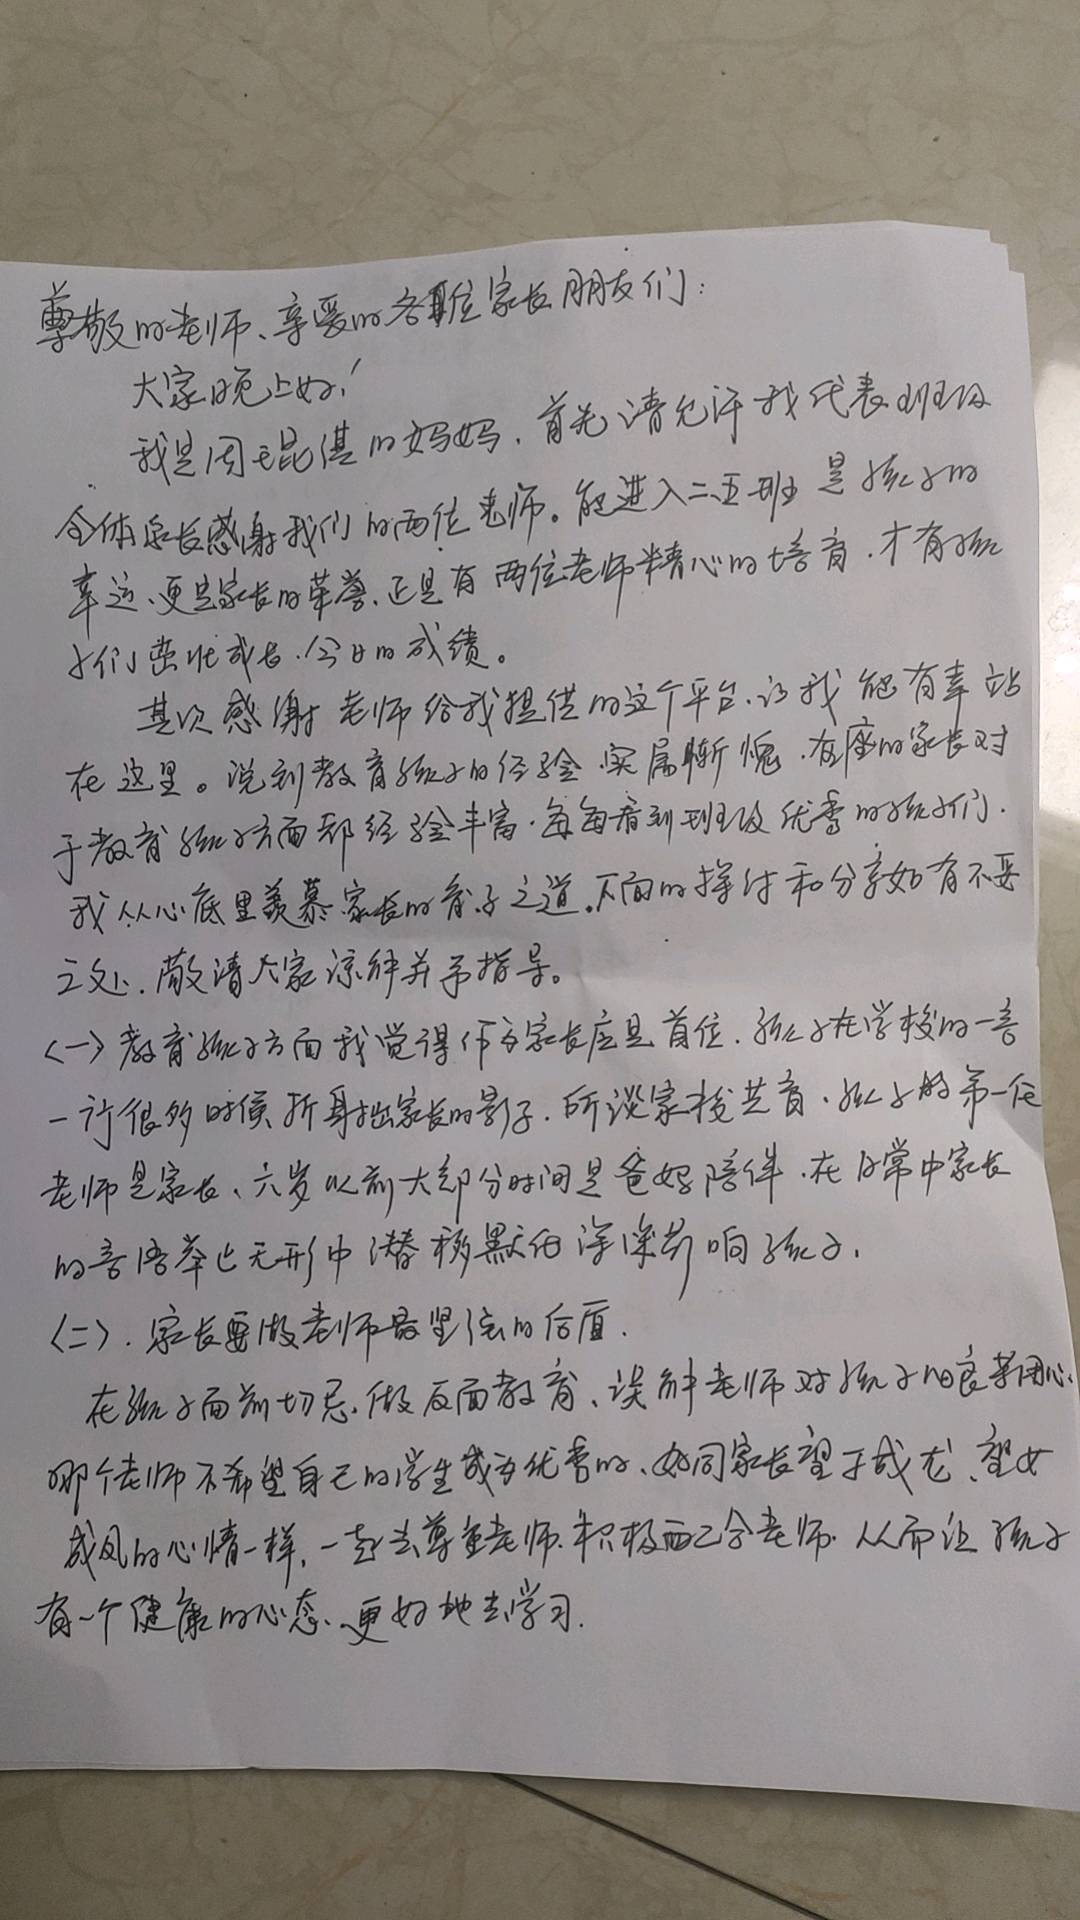 尊敬的老师、亲爱的各位家长朋友们:
大家晚上好!
我是周昆淇的妈妈,首先请允许我代表班级
全体家长感谢我们的两位老师。能进入二五班是孩子的
幸运、更是家长的荣誉、正是有两位老师精心的培育,才有孩
子们茁壮成长、今日的成绩。
其次感谢老师给我提供的这个平台、让我能有幸站
在这里。说到教育孩子的经验,实属惭愧,在座的家长对
于教育孩子方面都经验丰富,每每看到班级优秀的孩子们,
我从心底里羡慕家长的育子之道。下面的探讨和分享如有不妥
之处、敬请大家谅解并予指导。
<一>教育孩子方面我觉得作为家长应是首位,孩子在学校的一言
一行很多时候折射出家长的影子,所谈家校共育,孩子的第一任
老师是家长、六岁以前大部分时间是爸妈陪伴,在日常中家长
的言语举止无形中潜移默化深深影响孩子,
<二>.家长要做老师最坚强的后盾.
在孩子面前切忌做反面教育、误解老师对孩子的良苦用心、
哪个老师不希望自己的学生成为优秀的、如同家长望子成龙、望女
成凤的心情一样,一起去尊重老师.积极配合老师.从而让孩子
有一个健康的心态、更好地去学习.